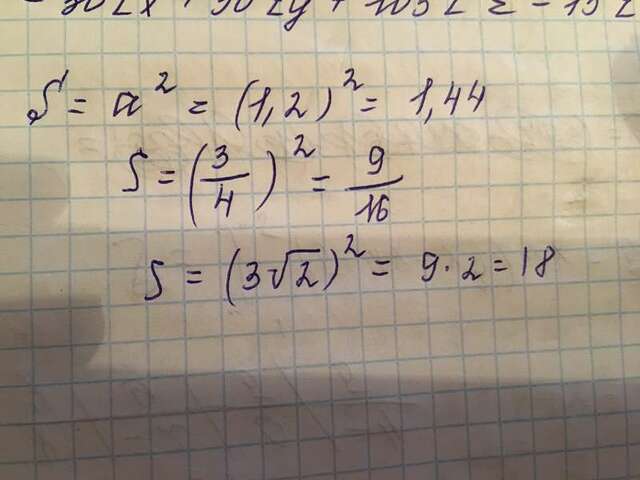 S = a² = (1,2)² = 1,44
S = (3/4)² = 9/16
S = (3√2)² = 9·2 = 18